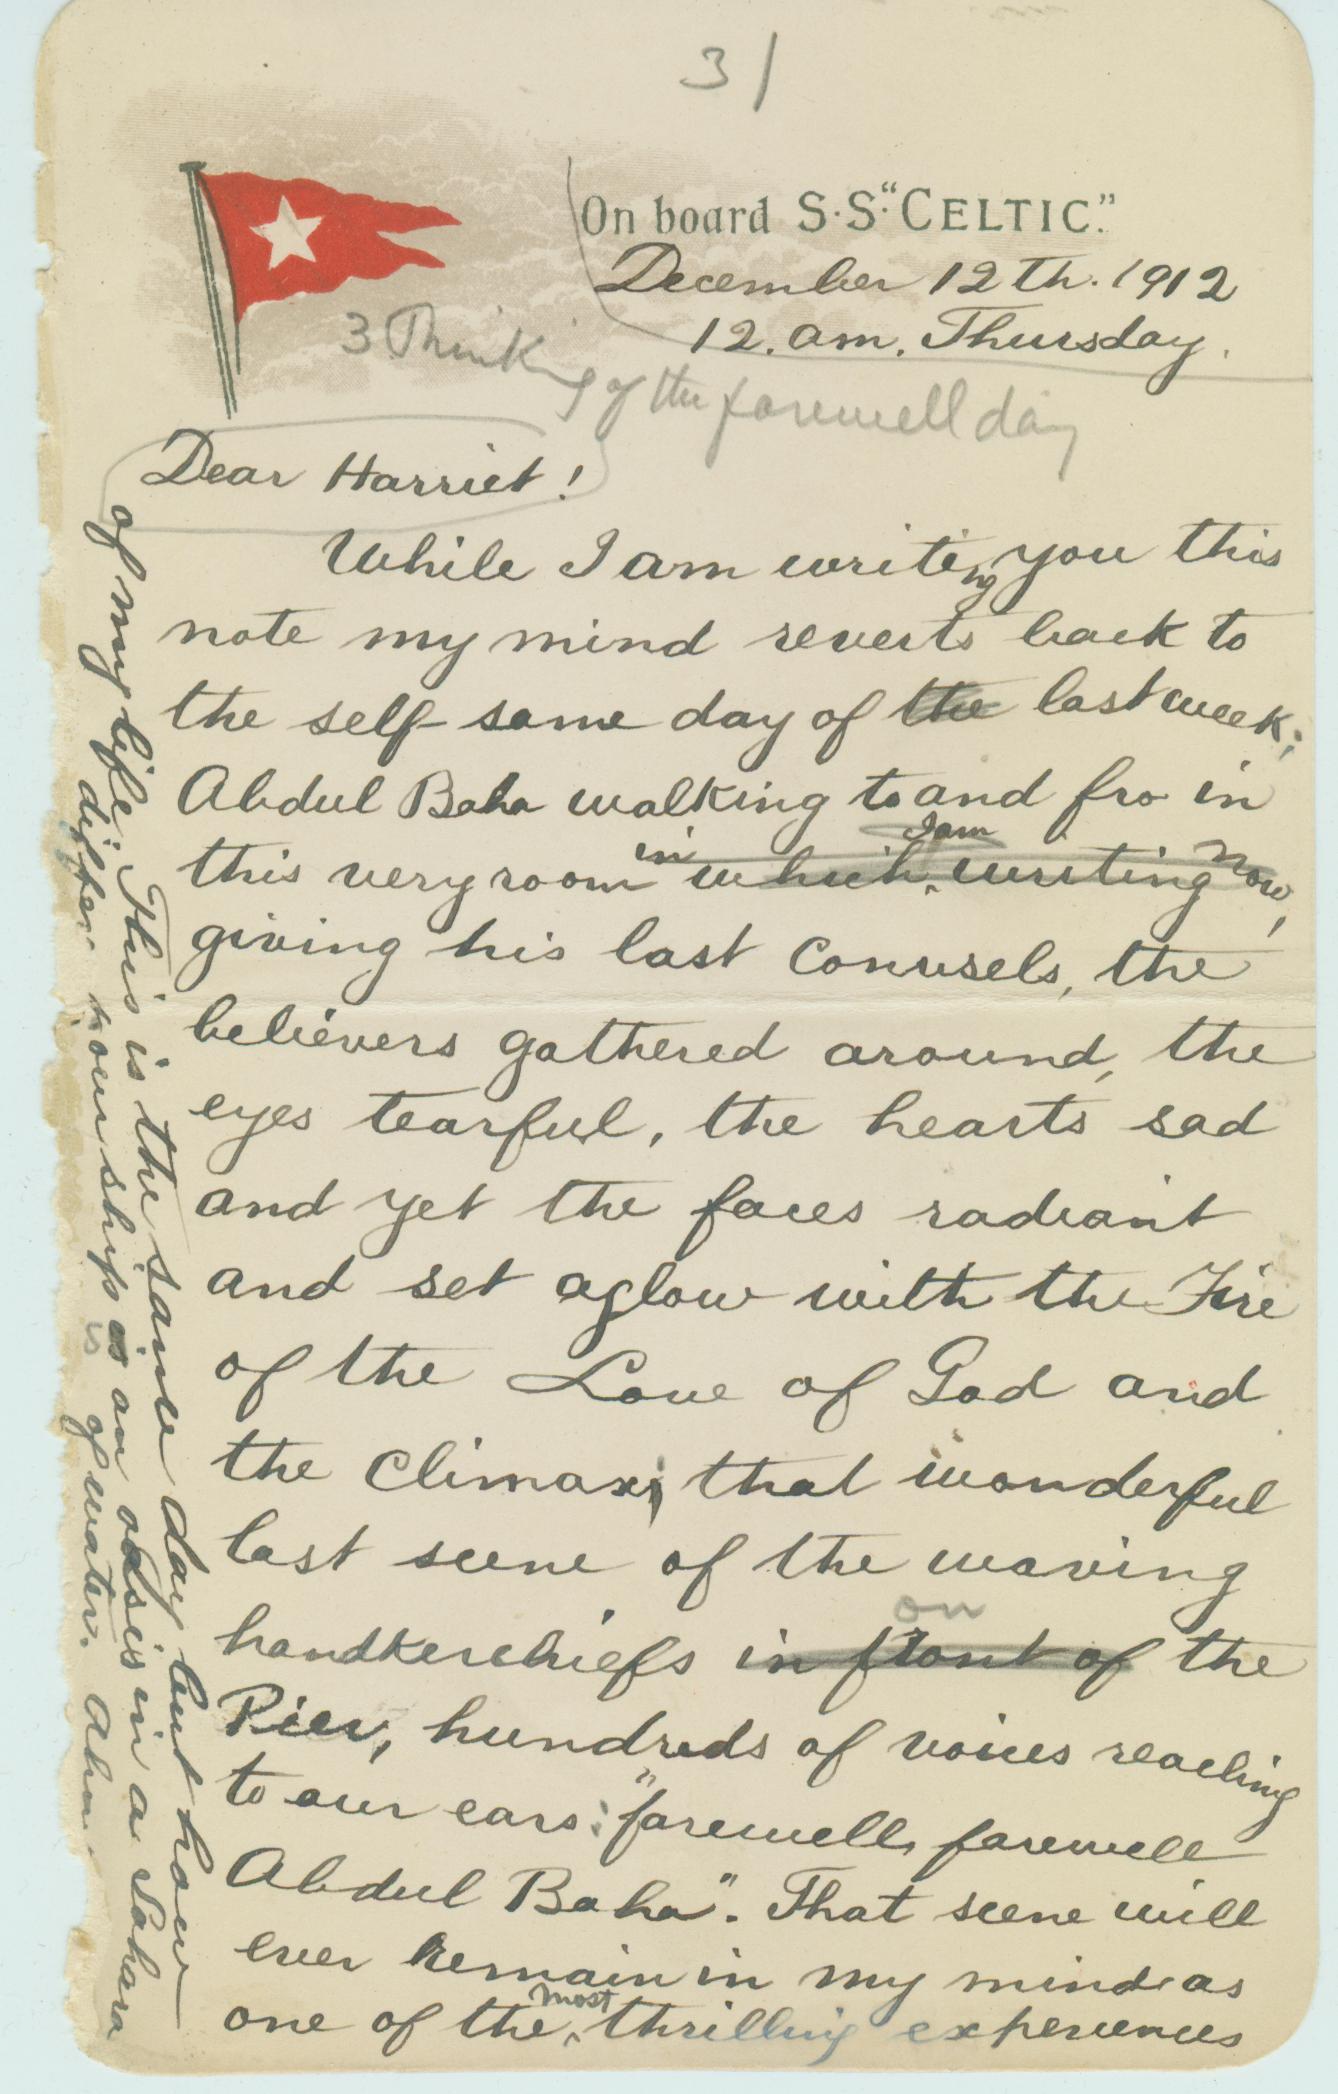 3/
On board S.S. "CELTIC."
December 12th. 1912
12. am. Thursday.
3 Thinking of the farewell day
Dear Harriet!
While I am writing you this
note my mind reverts back to
the self same day of the last week;
Abdul Baha walking to and fro in
I am
this very room in which writing now,
giving his last Conusels, the
believers gathered around, the
eyes tearful, the hearts sad
and yet the faces radiant
and set aglow with the Fire
of the Love of God and
the Climax, that wonderful
last scene of the waving
on
handkerchiefs in front of the
Pier, hundreds of voices reaching
to our ears: "farewell, farewell
Abdul Baha". That scene will
ever remain in my mind as
most
one of the thrilling experiences
of my life. This is the same day but how
differ. now ship is an oasis in a Sahara
is of water. Ahm.